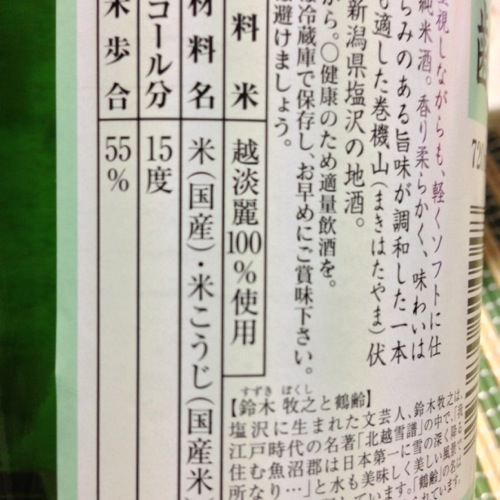 重視しながらも、軽くソフトに仕
純米酒。香り柔らかく、味わいは
らみのある旨味が調和した一本
も適した巻機山(まきはたやま)伏
新潟県塩沢の地酒。
から。〇健康のため適量飲酒を。
は冷蔵庫で保存し、お早めにご賞味下さい。
は避けましょう。
料米 越淡麗100%使用
材料名 米(国産)・米こうじ(国産米
コール分 15度
米歩合 55%
720
【鈴木牧之と鶴齢】
すずき ぼくし
塩沢に生まれた文芸人、鈴木牧之
江戸時代の名著「北越雪譜」の中で、
住む魚沼郡は日本第一に雪の深
所なり…」と水も美味しく美しい